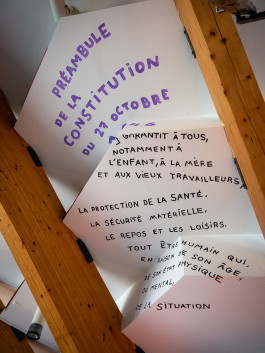 PRÉAMBULE
DE LA
CONSTITUTION
DU 27 OCTOBRE
GARANTIT À TOUS,
NOTAMMENT À
L'ENFANT, À LA MÈRE
ET AUX VIEUX TRAVAILLEURS,
LA PROTECTION DE LA SANTÉ,
LA SÉCURITÉ MATÉRIELLE,
LE REPOS ET LES LOISIRS.
TOUT ÊTRE HUMAIN QUI,
EN RAISON DE SON ÂGE,
DE SON ÉTAT PHYSIQUE
OU MENTAL,
DE LA SITUATION